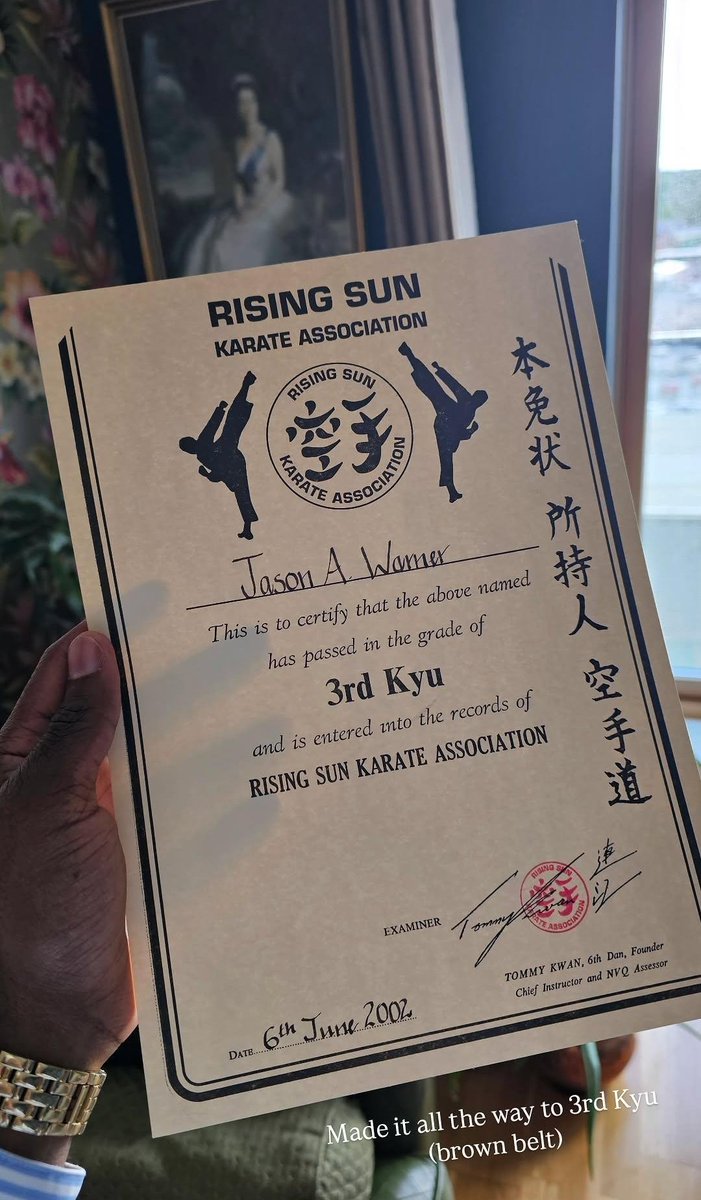 RISING SUN
KARATE ASSOCIATION
RISING SUN
空手
KARATE ASSOCIATION
本免状 所持人 空手道
Jason A. Warner
This is to certify that the above named
has passed in the grade of
3rd Kyu
and is entered into the records of
RISING SUN KARATE ASSOCIATION
EXAMINER
Tommy Kwan
RISING SUN
空手
KARATE ASSOCIATION
TOMMY KWAN, 6th Dan, Founder
Chief Instructor and NVQ Assessor
DATE 6th June 2002
Made it all the way to 3rd Kyu
(brown belt)